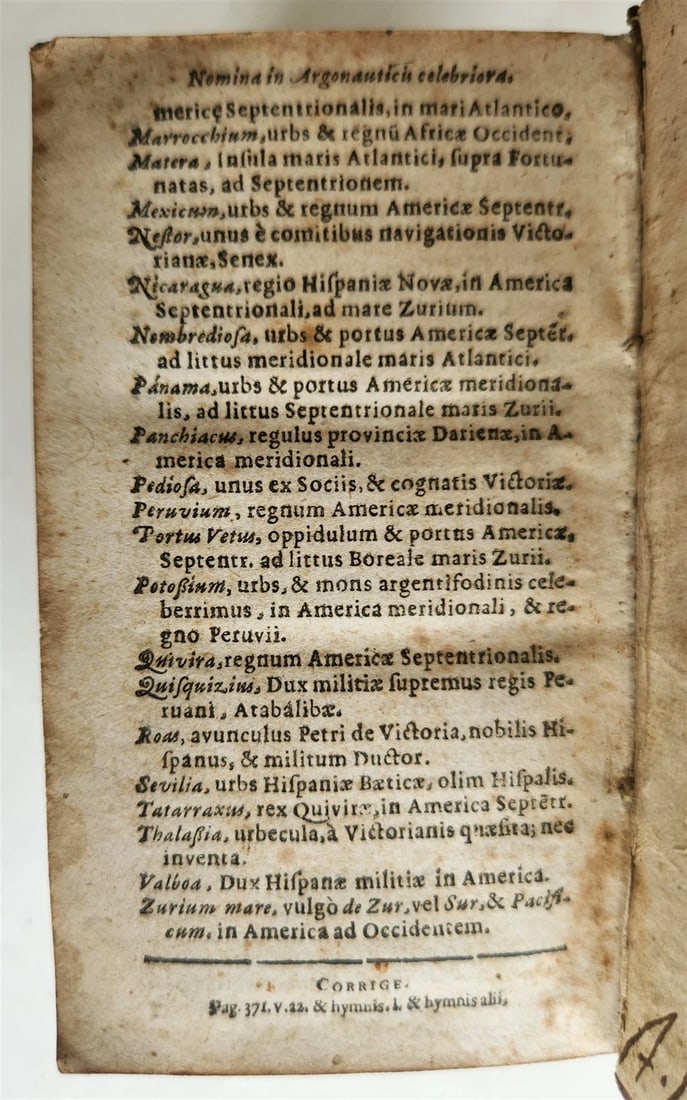 Nomina in Argonauticis celebriora.
mericę Septentrionalis, in mari Atlantico.
Marrocchium, urbs & regnū Africæ Occident.
Matera, Insula maris Atlantici, ſupra Fortu-
natas, ad Septentrionem.
Mexicum, urbs & regnum Americæ Septentr.
Neſtor, unus è comitibus navigationis Victo-
rianæ, Senex.
Nicaragua, regio Hiſpaniæ Novæ, in America
Septentrionali, ad mare Zurium.
Nombredioſa, urbs & portus Americæ Septēt.
ad littus meridionale maris Atlantici.
Pánama, urbs & portus Americæ meridiona-
lis, ad littus Septentrionale maris Zurii.
Panchiacus, regulus provinciæ Darienæ, in A-
merica meridionali.
Pedioſa, unus ex Sociis, & cognatis Victoriæ.
Peruvium, regnum Americæ meridionalis.
Portus Vetus, oppidulum & portus Americæ,
Septentr. ad littus Boreale maris Zurii.
Potoßium, urbs, & mons argentifodinis cele-
berrimus, in America meridionali, & re-
gno Peruvii.
Quivira, regnum Americæ Septentrionalis.
Quiſquizius, Dux militiæ ſupremus regis Pe-
ruani, Atabálibæ.
Roas, avunculus Petri de Victoria, nobilis Hi-
ſpanus, & militum Ductor.
Sevilia, urbs Hiſpaniæ Bæticæ, olim Hiſpalis.
Tatarraxus, rex Quiviræ, in America Septētr.
Thalaßia, urbecula, à Victorianis quæſita; nec
inventa.
Valboa, Dux Hiſpanæ militiæ in America.
Zurium mare, vulgò de Zur, vel Sur, & Pacifi-
cum, in America ad Occidentem.
CORRIGE.
Pag. 371. v. 22. & hymnis. l. & hymnis alii,
7.